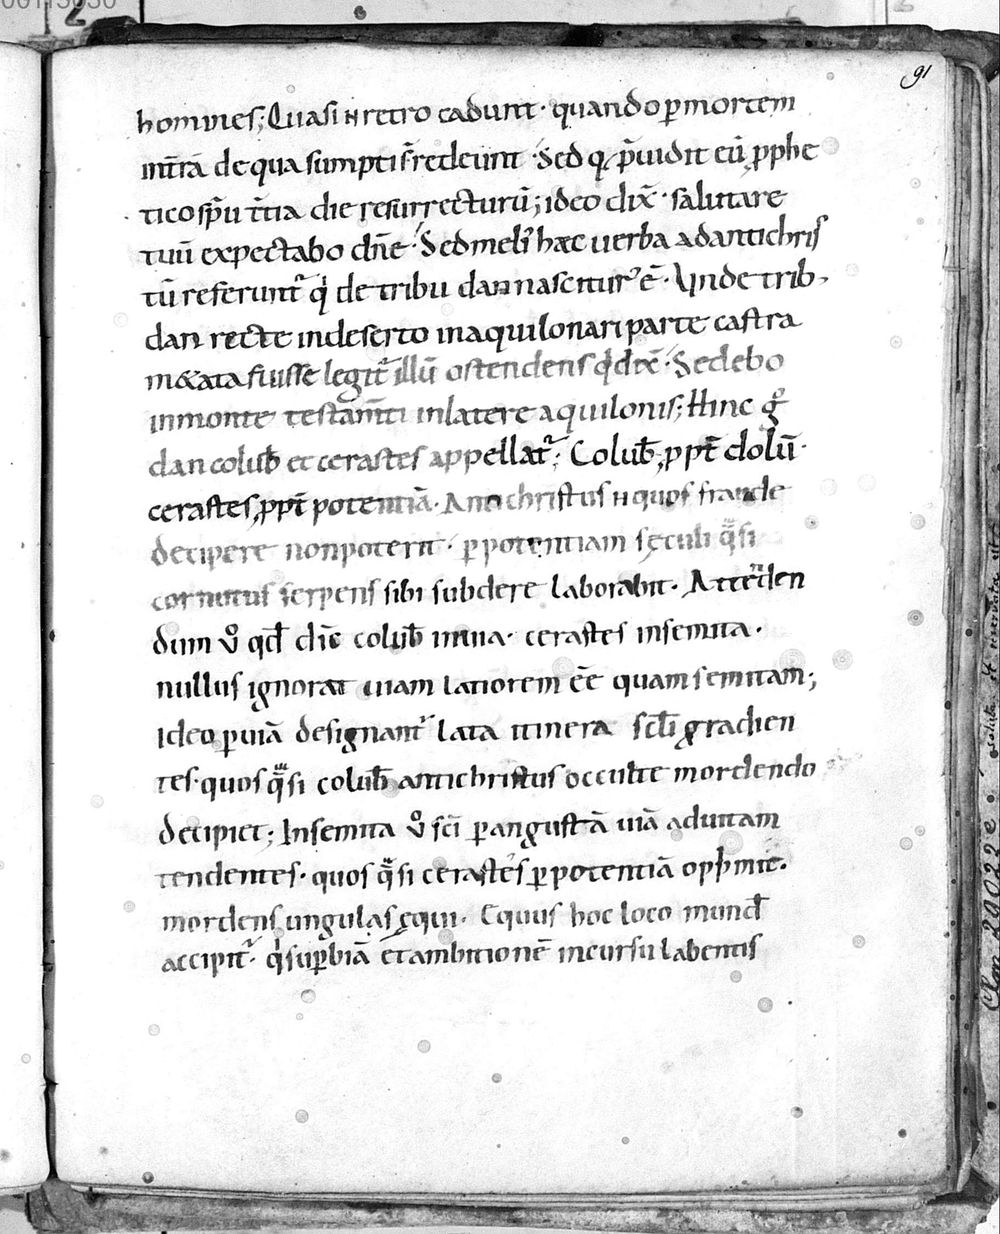 91
homines; Quasi n̄ retro cadunt· quando ꝑ mortem
int̄rā de qua sumpti s̄ redeunt· Sed q; p̄uidit eū ꝓphe
tico sp̄u t̄tia die resurrecturū; ideo dix̄· salutare
tuū expectabo dn̄e· Sed meli᷒ haec uerba ad antichris
tū referunt᷑ q' de tribu dan nasciturꝰ ē· Unde trib;
dan recte in deserto in aquilonari parte castra
m&ata fuisse legit᷑ illū ostendens q' dix̄· Sedebo
in monte testam̄ti in latere aquilonis; Hinc gͦ
dan colub̄ et cerastes appellat᷑; Colub̄, ꝓpt̄ dolū·
cerastes, ꝓpt̄ potentiā· Antichristus n̄ quos fraude
decipere non poterit· ꝑ potentiam sęculi q̄si
cornutus serpens sibi subdere laborabit· Attēden
dum v͛ qd̄ dic̄ colub̄ in uia· cerastes in semita·
nullus ignorat uiam latiorem ēē quam semitam;
Ideo ꝑ uiā designant᷑ lata itinera scl̄i gradien
tes· quos q̄si colub̄ antichristus occulte mordendo
decipiet; In semita v͛ sc̄i ꝑ angustā uiā ad uitam
tendentes· quos q̄si cerastes ꝑ potentiā opp̄mit·
mordens ungulas ęqui· Equus hoc loco mund᷒
accipit᷑· q' suꝑbiā et ambitionē in cursu labentis
Clm 2902 2 e